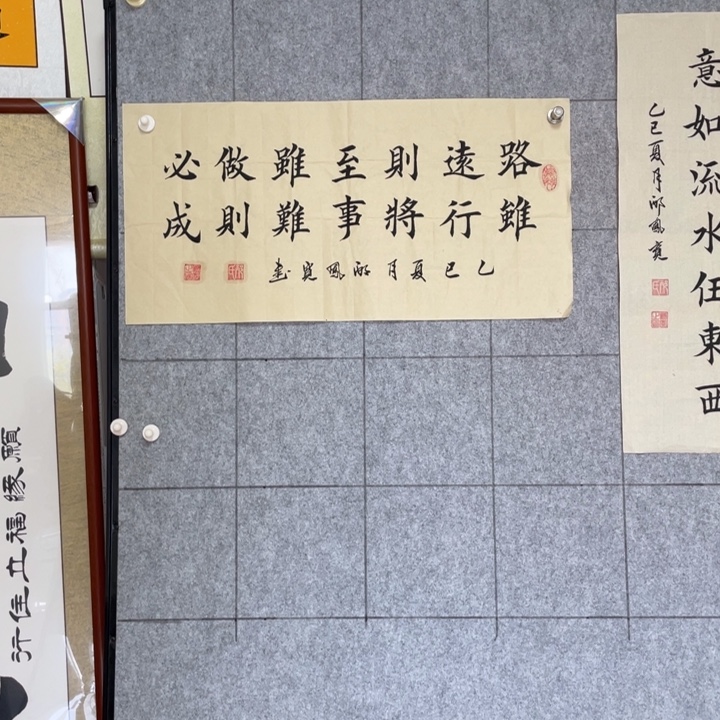 意如流水任東西
乙巳夏月邱鳳
路雖
遠行
則將
至事
雖難
做則
必成
乙巳夏月邱鳳
願緣福